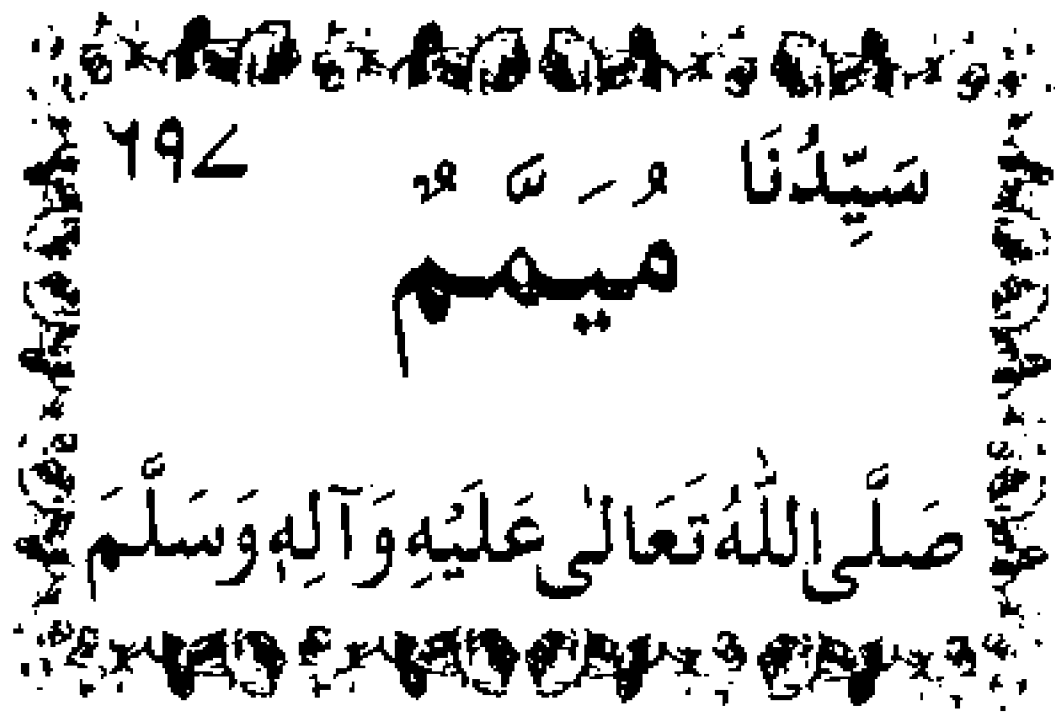 سَيِّدُنَا ۶۹۷
مُيَمَّمٌ
صَلَّى اللّٰهُ تَعَالٰى عَلَيْهِ وَآلِهٖ وَسَلَّمَ